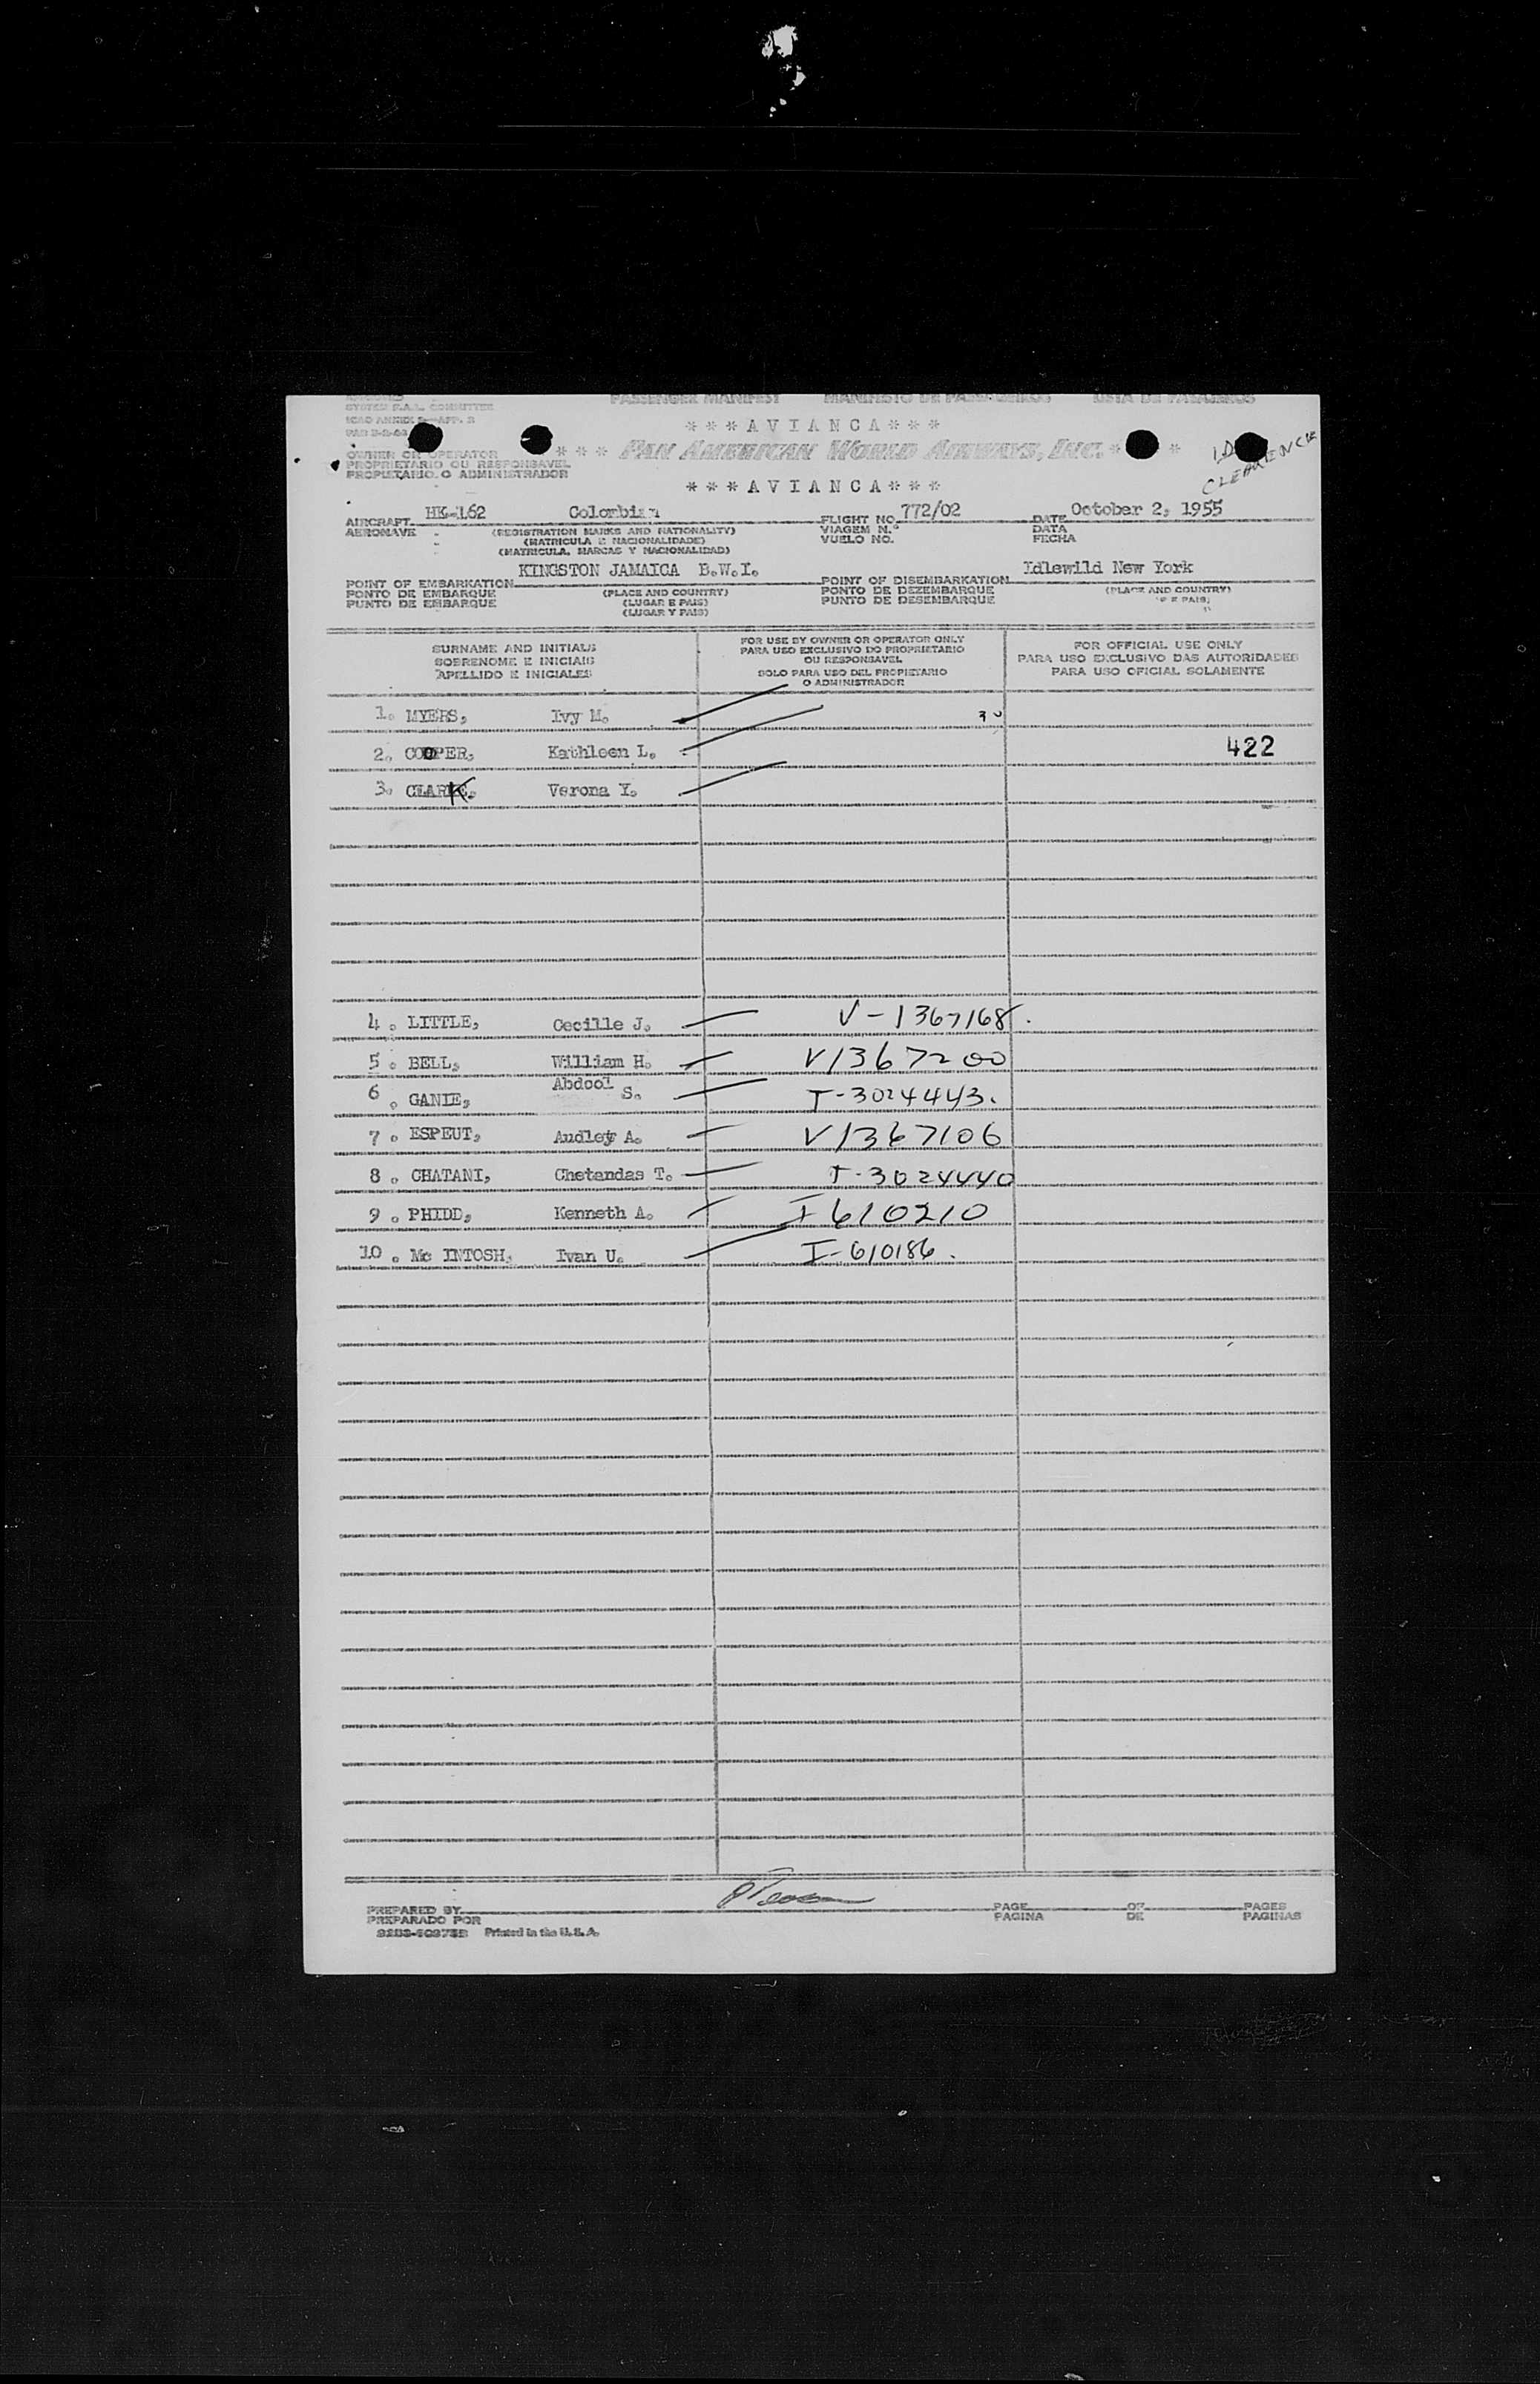 SYSTEM F.A.L. COMMITTEE
PASSENGER MANIFEST MANIFESTO DE PASSAGEIROS LISTA DE PASAJEROS
***AVIANCA***
OWNER OR OPERATOR *** PAN AMERICAN WORLD AIRWAYS, INC. * *
PROPRIETARIO OU RESPONSAVEL
PROPIETARIO O ADMINISTRADOR
CLEARENCE
***AVIANCA***
AIRCRAFT HK-162 Colombian FLIGHT NO. 772/02 DATE October 2, 1955
AERONAVE (REGISTRATION MARKS AND NATIONALITY) VIAGEM N.º DATA
(MATRICULA E NACIONALIDADE) VUELO NO. FECHA
(MATRICULA, MARCAS Y NACIONALIDAD)
POINT OF EMBARKATION KINGSTON JAMAICA B.W.I. POINT OF DISEMBARKATION Idlewild New York
PONTO DE EMBARQUE (PLACE AND COUNTRY) PONTO DE DEZEMBARQUE (PLACE AND COUNTRY)
PUNTO DE EMBARQUE (LUGAR E PAIS) PUNTO DE DESEMBARQUE E PAIS)
(LUGAR Y PAIS)
SURNAME AND INITIALS
SOBRENOME E INICIAIS
APELLIDO E INICIALES
FOR USE BY OWNER OR OPERATOR ONLY
PARA USO EXCLUSIVO DO PROPRIETARIO
OU RESPONSAVEL
SOLO PARA USO DEL PROPIETARIO
O ADMINISTRADOR
FOR OFFICIAL USE ONLY
PARA USO EXCLUSIVO DAS AUTORIDADES
PARA USO OFICIAL SOLAMENTE
1. MYERS, Ivy M.
2. COOPER, Kathleen L. 422
3. CLARK. Verona Y.
4. LITTLE, Cecille J. V-1367168
5. BELL, William H. V1367200
6. GANIE, Abdool S. T-3024443.
7. ESPEUT, Audley A. V1367106
8. CHATANI, Chetandas T. T-3024440
9. PHIDD, Kenneth A. I 610210
10. Mc INTOSH, Ivan U. I-610186.
PREPARED BY PAGE OF PAGES
PREPARADO POR PAGINA DE PAGINAS
Printed in the U.S.A.